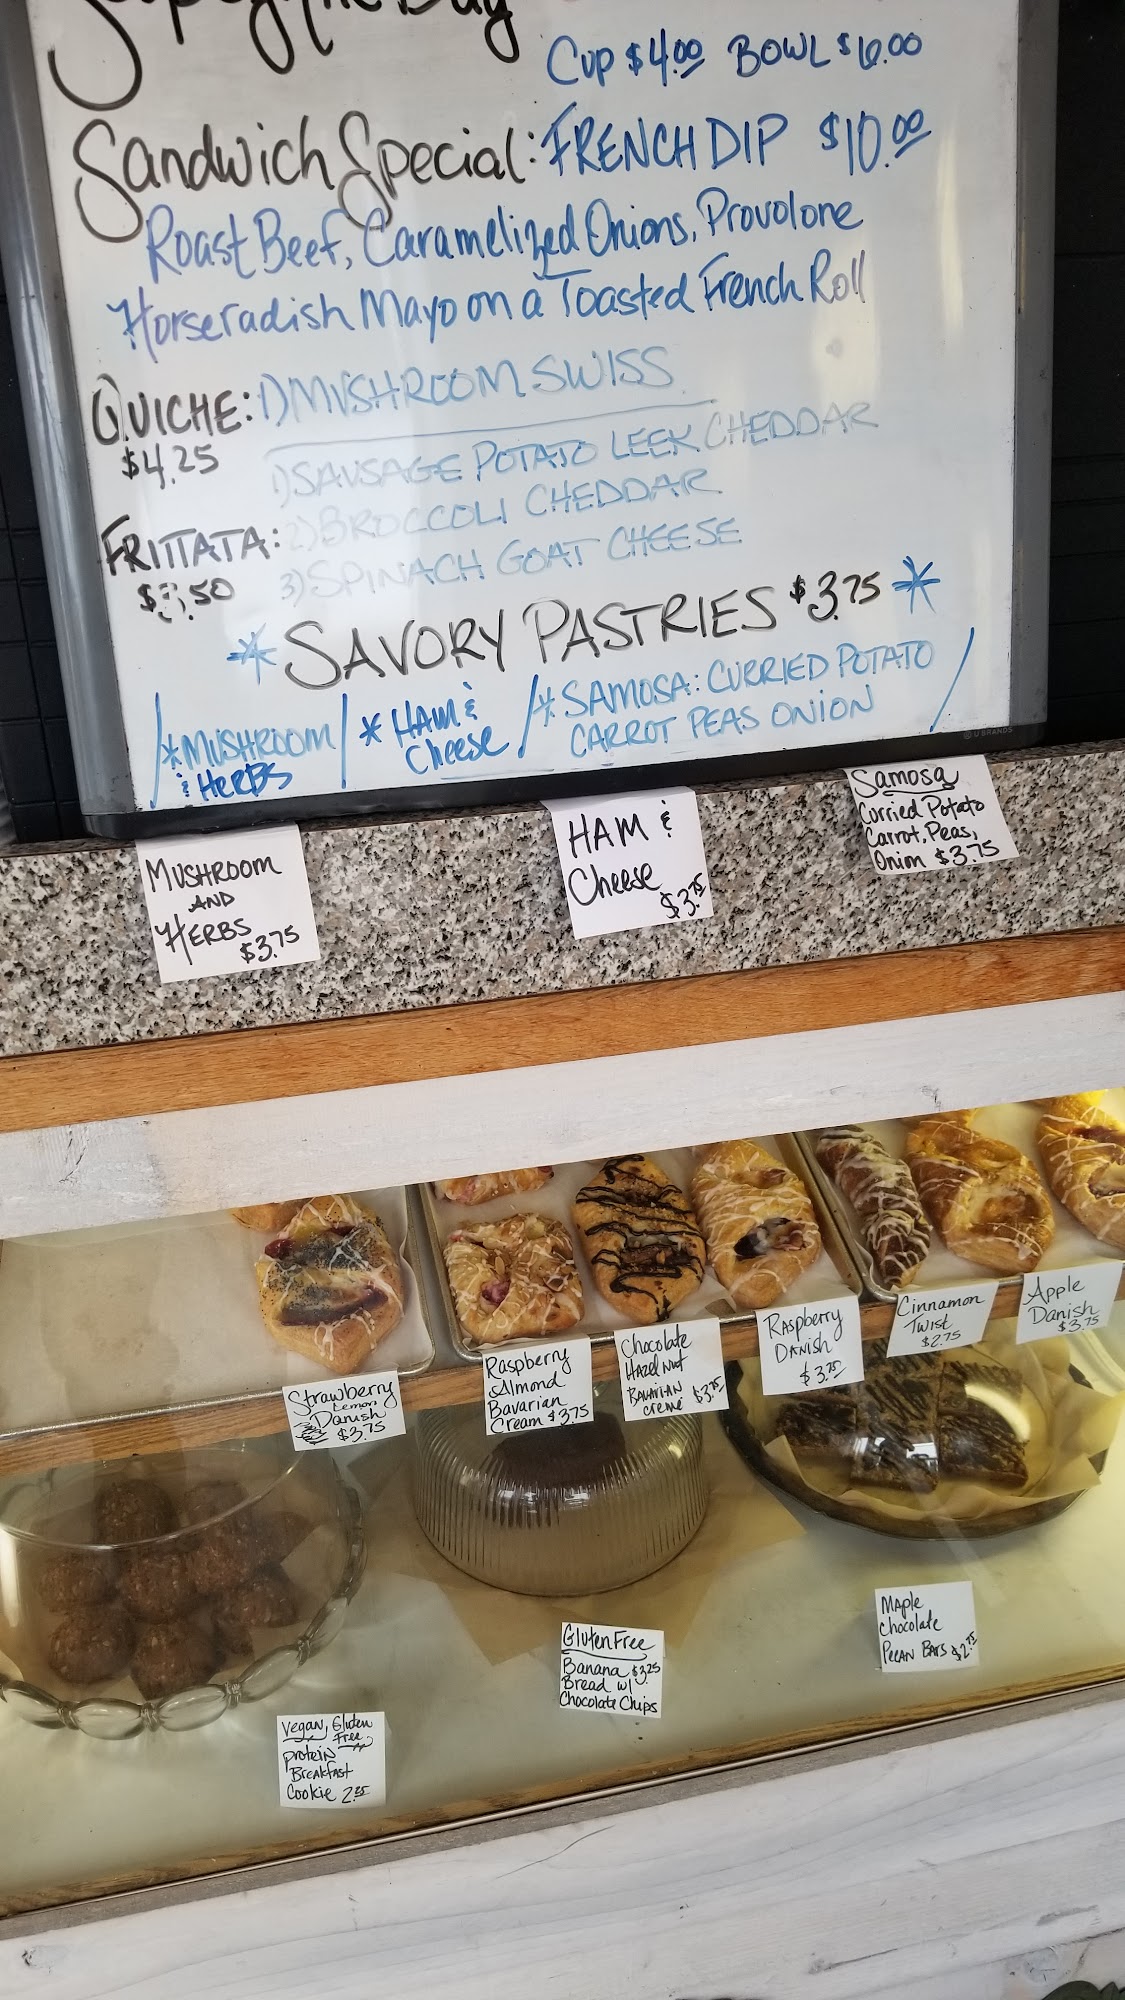 Soup of the Day
Cup $4.00 BOWL $6.00
Sandwich Special: FRENCH DIP $10.00
Roast Beef, Caramelized Onions, Provolone
Horseradish Mayo on a Toasted French Roll
QUICHE: 1) MUSHROOM SWISS
$4.25
1) SAUSAGE POTATO LEEK CHEDDAR
FRITTATA: 2) BROCCOLI CHEDDAR
3) SPINACH GOAT CHEESE
* SAVORY PASTRIES $3.75 *
/ * MUSHROOM
& HERBS
/ * HAM &
Cheese
/ * SAMOSA: CURRIED POTATO
CARROT PEAS ONION /
U BRANDS
MUSHROOM
AND
HERBS
$3.75
HAM &
Cheese
$3.75
Samosa
Curried Potato
Carrot, Peas,
Onion $3.75
Strawberry
Lemon
Danish
$3.75
Raspberry
Almond
Bavarian
Cream $3.75
Chocolate
Hazelnut
Bavarian
creme $3.75
Raspberry
DANISH
$3.75
Cinnamon
Twist
$2.75
Apple
Danish
$3.75
Vegan, Gluten
Free
protein
Breakfast
Cookie 2.25
Gluten Free
Banana $3.25
Bread w/
Chocolate Chips
Maple
Chocolate
Pecan Bars $2.75